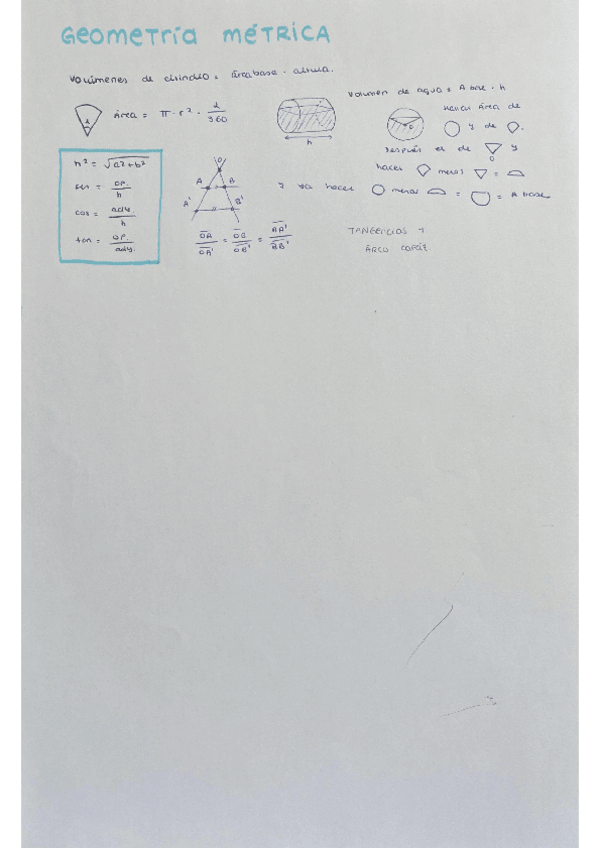 GEOMETRÍA MÉTRICA
Volúmenes de cilindro = área base · altura.
área = π · r² · α/360
h
Volumen de agua = A base · h
hallas área de
y de .
después el de y
haces menos =
y ya haces menos = = A base
h² = √a²+b²
sen = op./h
cos = ady./h
tan = op./ady.
O
A B
A' B'
OA/OA' = OB/OB' = AA'/BB'
TANGENCIAS Y
ARCO CAPAZ